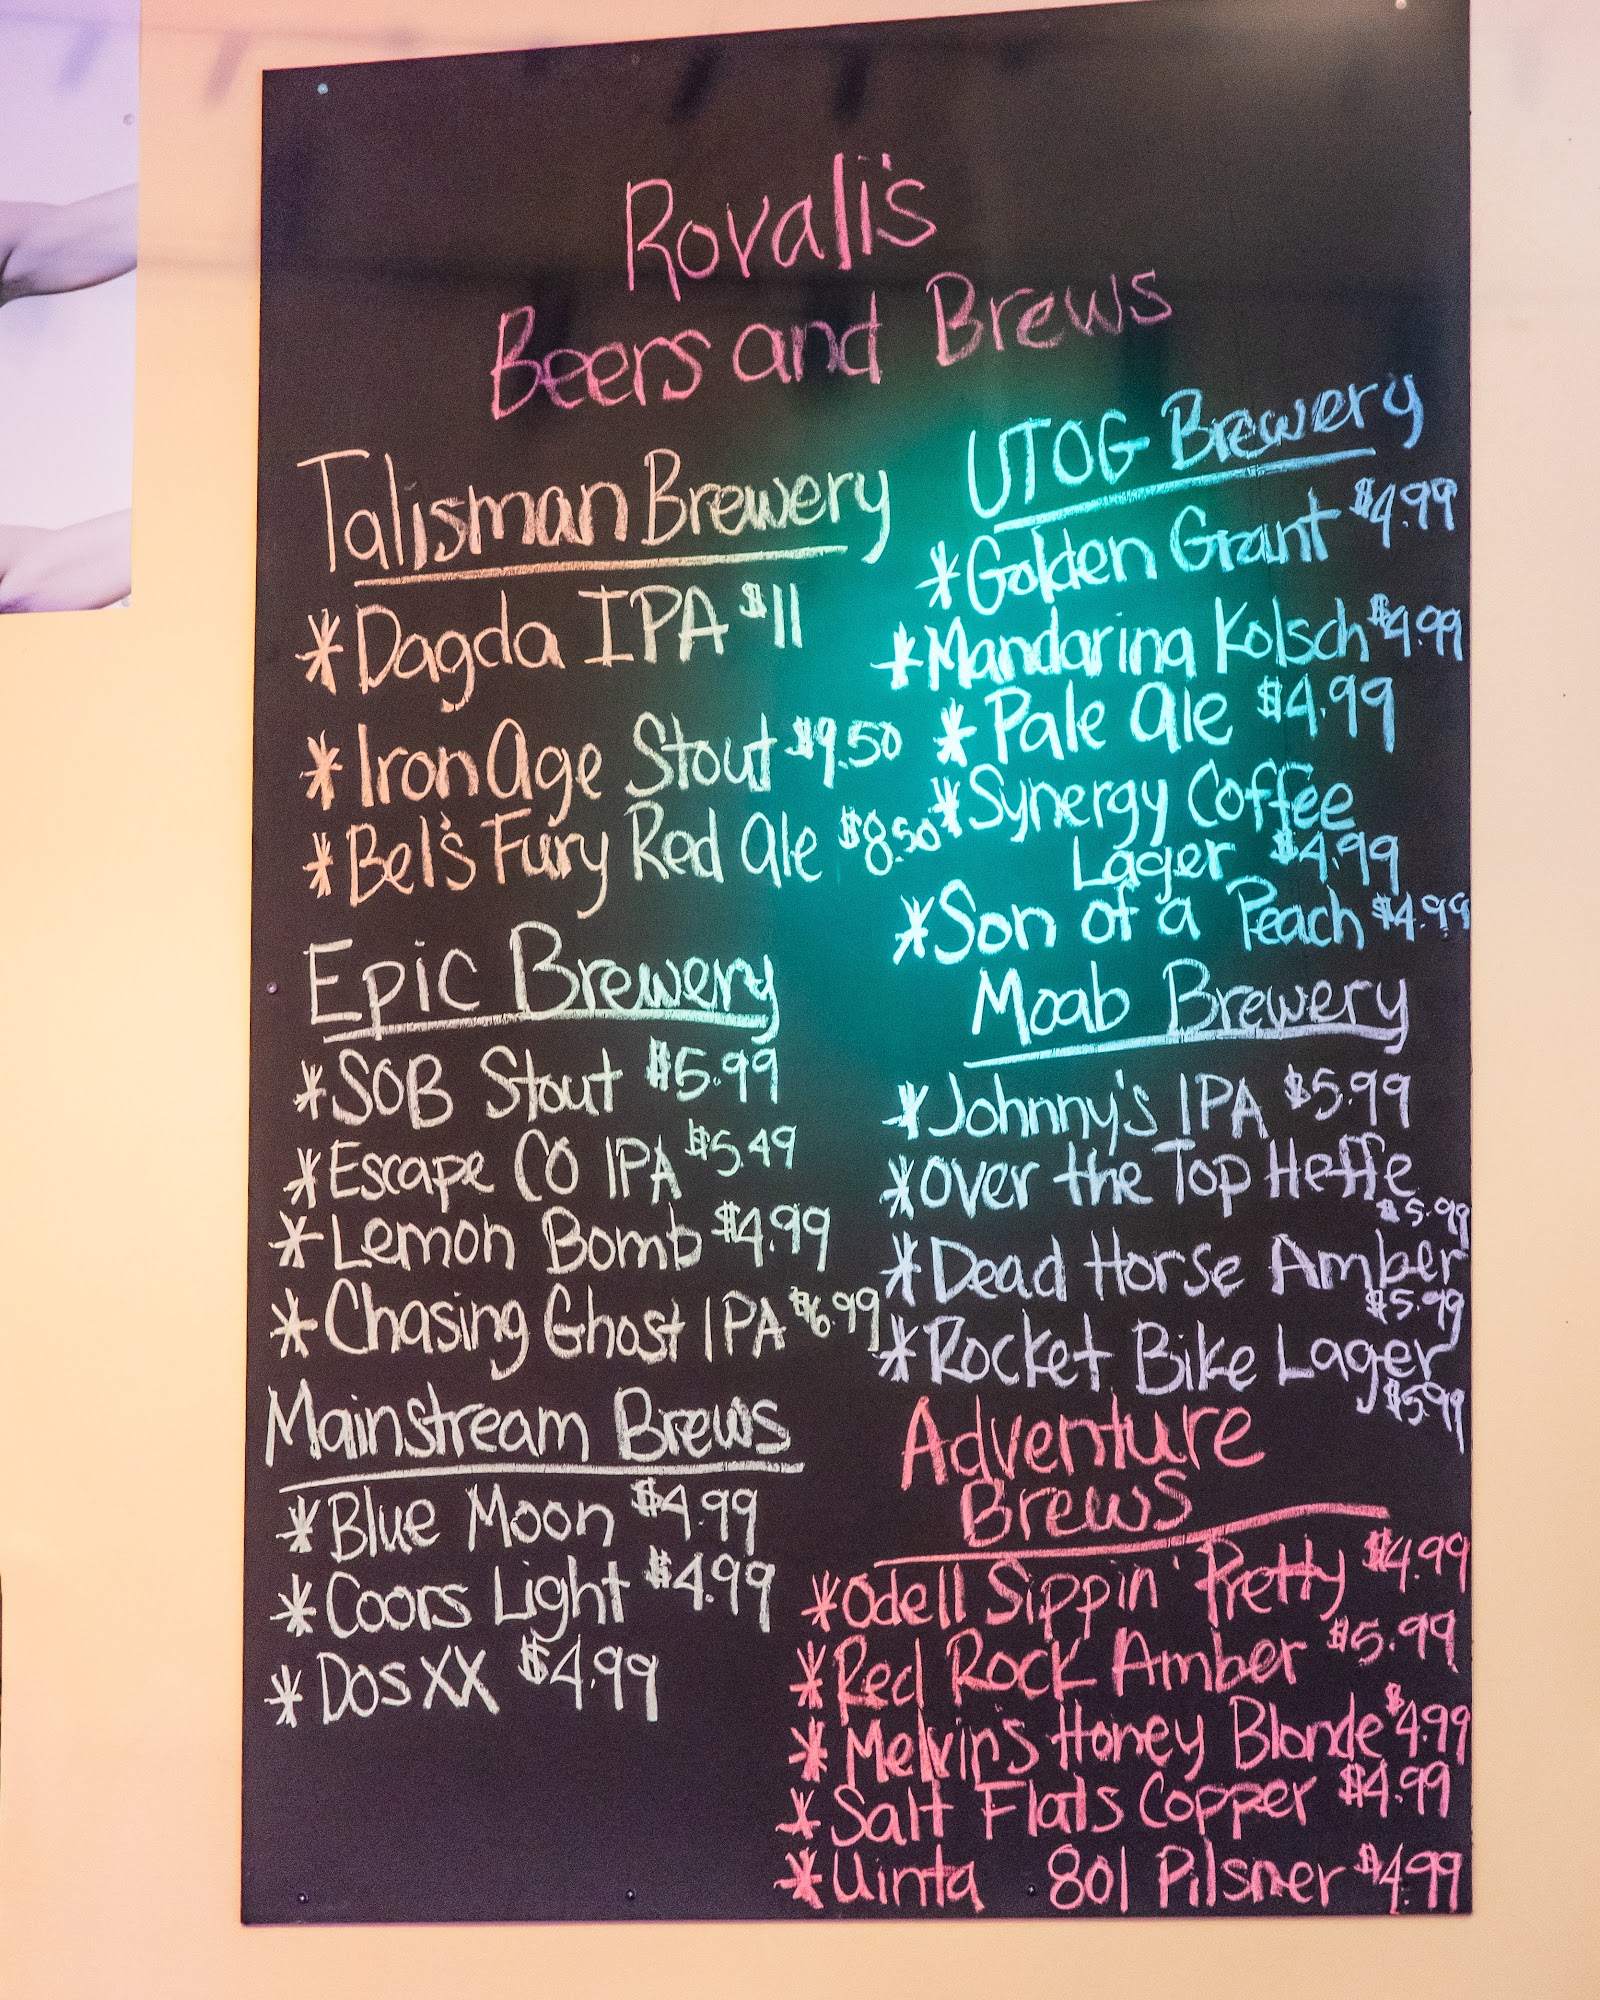 Rovali's
Beers and Brews
Talisman Brewery
*Dagda IPA $11
*Iron Age Stout $9.50
*Bel's Fury Red Ale $8.50
Epic Brewery
*SOB Stout $5.99
*Escape CO IPA $5.49
*Lemon Bomb $4.99
*Chasing Ghost IPA $6.99
Mainstream Brews
*Blue Moon $4.99
*Coors Light $4.99
*Dos XX $4.99
UTOG Brewery
*Golden Grant $4.99
*Mandarina Kolsch $4.99
*Pale Ale $4.99
*Synergy Coffee
Lager $4.99
*Son of a Peach $4.99
Moab Brewery
*Johnny's IPA $5.99
*Over the Top Heffe
$5.99
*Dead Horse Amber
$5.99
*Rocket Bike Lager
$5.99
Adventure
Brews
*Odell Sippin' Pretty $4.99
*Red Rock Amber $5.99
*Melvin's Honey Blonde $4.99
*Salt Flats Copper $4.99
*Uinta 801 Pilsner $4.99